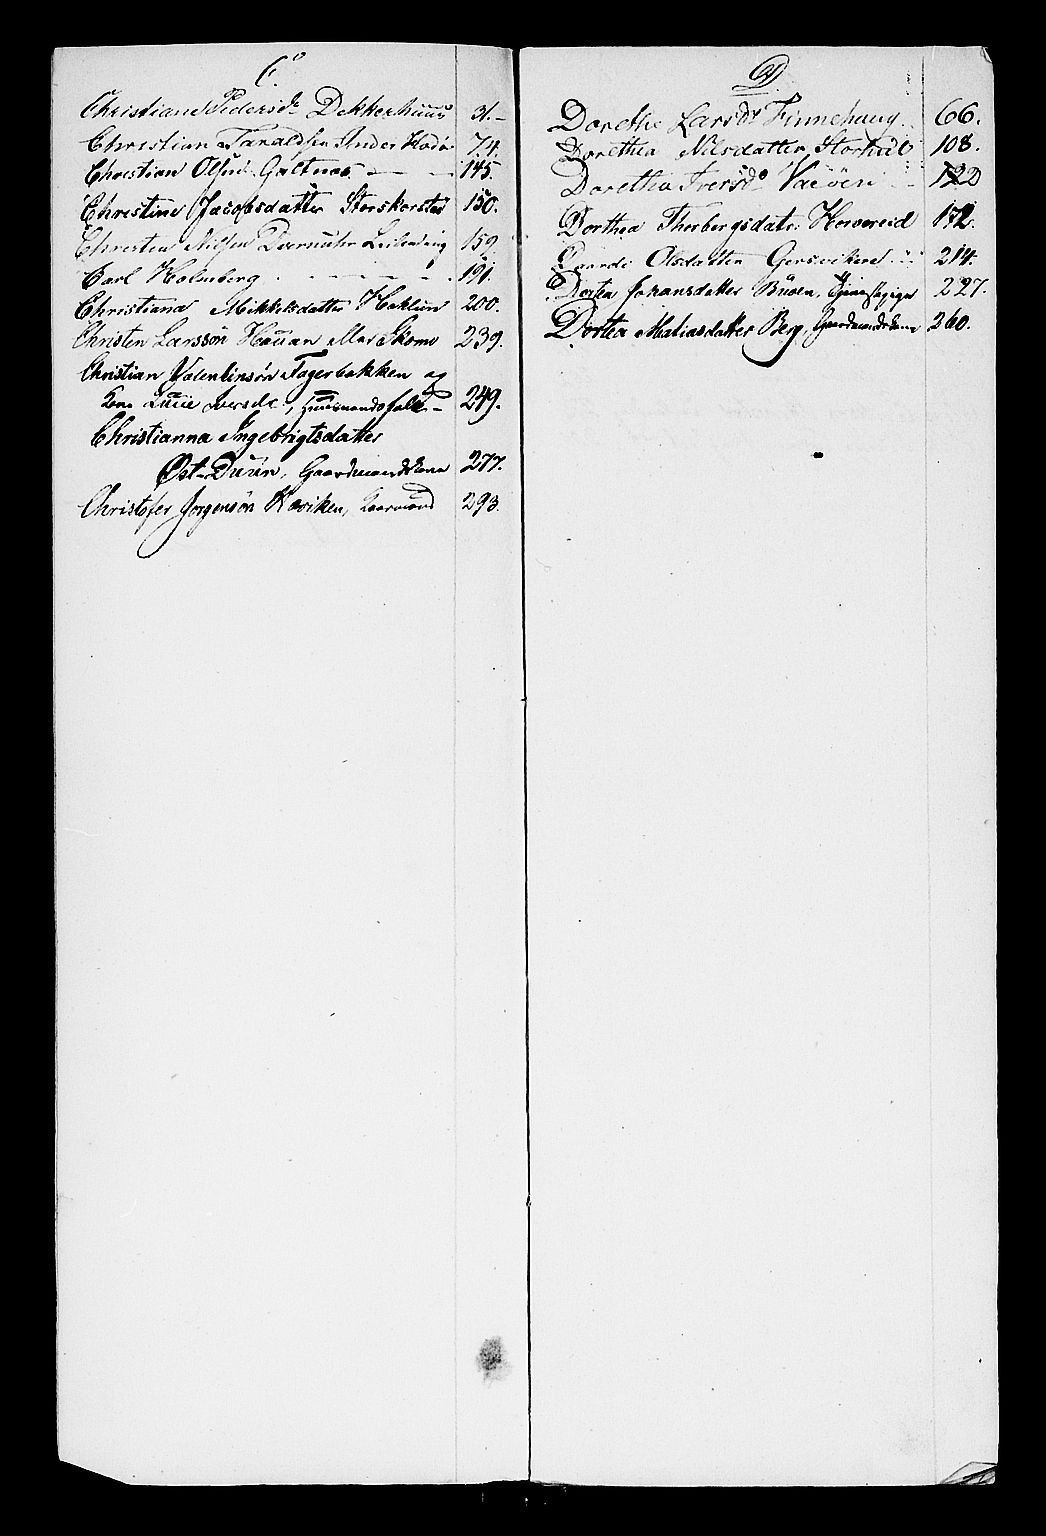 C.
Christiane Pedersdr Dekkerhuus 31.-
Christian Taraldsen Inder Hodø 74.
Christian Olsen Galtnæs 145.
Christine Jacobsdatter Storskorstad 150.
Christen Nilsen 159.
Carl Holmberg 191.
Christiana Mikkelsdatter Haklun 200.
Christen Larssøn Hauan eller Skomo 239.
Christian Valentinsøn Fagerbakken og
Kone Lucie Iversdr, Huusmandsfolk - 249.
Christianna Ingebrigtsdatter
Øst-Duun, Gaardmandskone 277.
Christofer Jørgensøn Haviken, 293.
D.
Dorethe Larsdr Finnehaug 66.
Dorethea Nilsdatter Storhal 108.
Doretha Iversdr Værøen 122
Dorthea Thorbergsdatr. Horvereid 172.
Olsdatter Gersvikene 214.
Dortea Johansdatter Buøen, 227.
Dortea Matiasdatter Berg, Gaardmandskone 260.